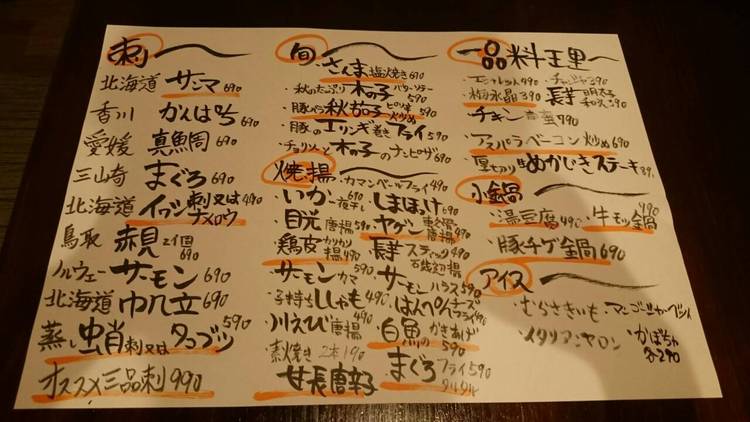 刺
北海道 サンマ 690
香川 かんぱち 690
愛媛 真鯛 690
三崎 まぐろ 690
北海道 イワシ 刺又は ナメロウ 490
鳥取 赤貝 2個 690
ノルウェー サーモン 690
北海道 帆立 690
蒸し 刺又は タコブツ 590
オススメ三品刺 990
旬
・さんま 塩焼き 690
・秋のたっぷり 木の子 バターソテー 590
・豚バラ 秋茄子 ピリ辛炒め 590
・豚のエリンギ巻き フライ 590
・チョリソーと木の子のナンピザ 590
焼・揚
・カマンベールフライ 490
・いか 一夜干し 610
・しまほっけ 690
・目光 唐揚 590
・ヤゲン 唐揚 590
・鶏皮 カリカリ揚 490
・長芋 スティック 石垣揚 490
・サーモンカマ 590
・サーモンハラス 590
・子持ししゃも 490
・はんぺんチーズフライ 490
・川えび 唐揚 490
・白魚の かきあげ 590
・素焼き 2本190
甘長唐辛子
・まぐろ フライ 590 タルタル
一品料理
・エシャレット 490
・チャンジャ 390
・梅水晶 390
・長芋 明太子 和え 390
・チキン 南蛮 790
・アスパラベーコン 炒め 690
・厚切りめかじきステーキ 89
小鍋
・湯豆腐 490
・牛モツ鍋 490
・豚チゲ鍋 690
アイス
・むらさきいも
・マンゴーシャーベット
・イタリアンマロン
・かぼちゃ
各290